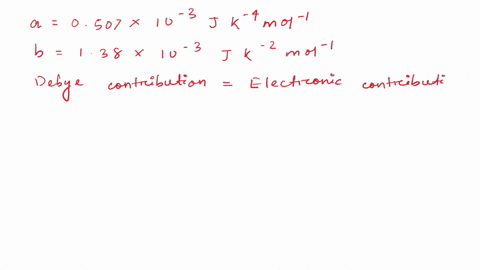 a = 0.507 × 10⁻³ J K⁻⁴ mol⁻¹
b = 1.38 × 10⁻³ J K⁻² mol⁻¹
Debye contribution = Electronic contributi